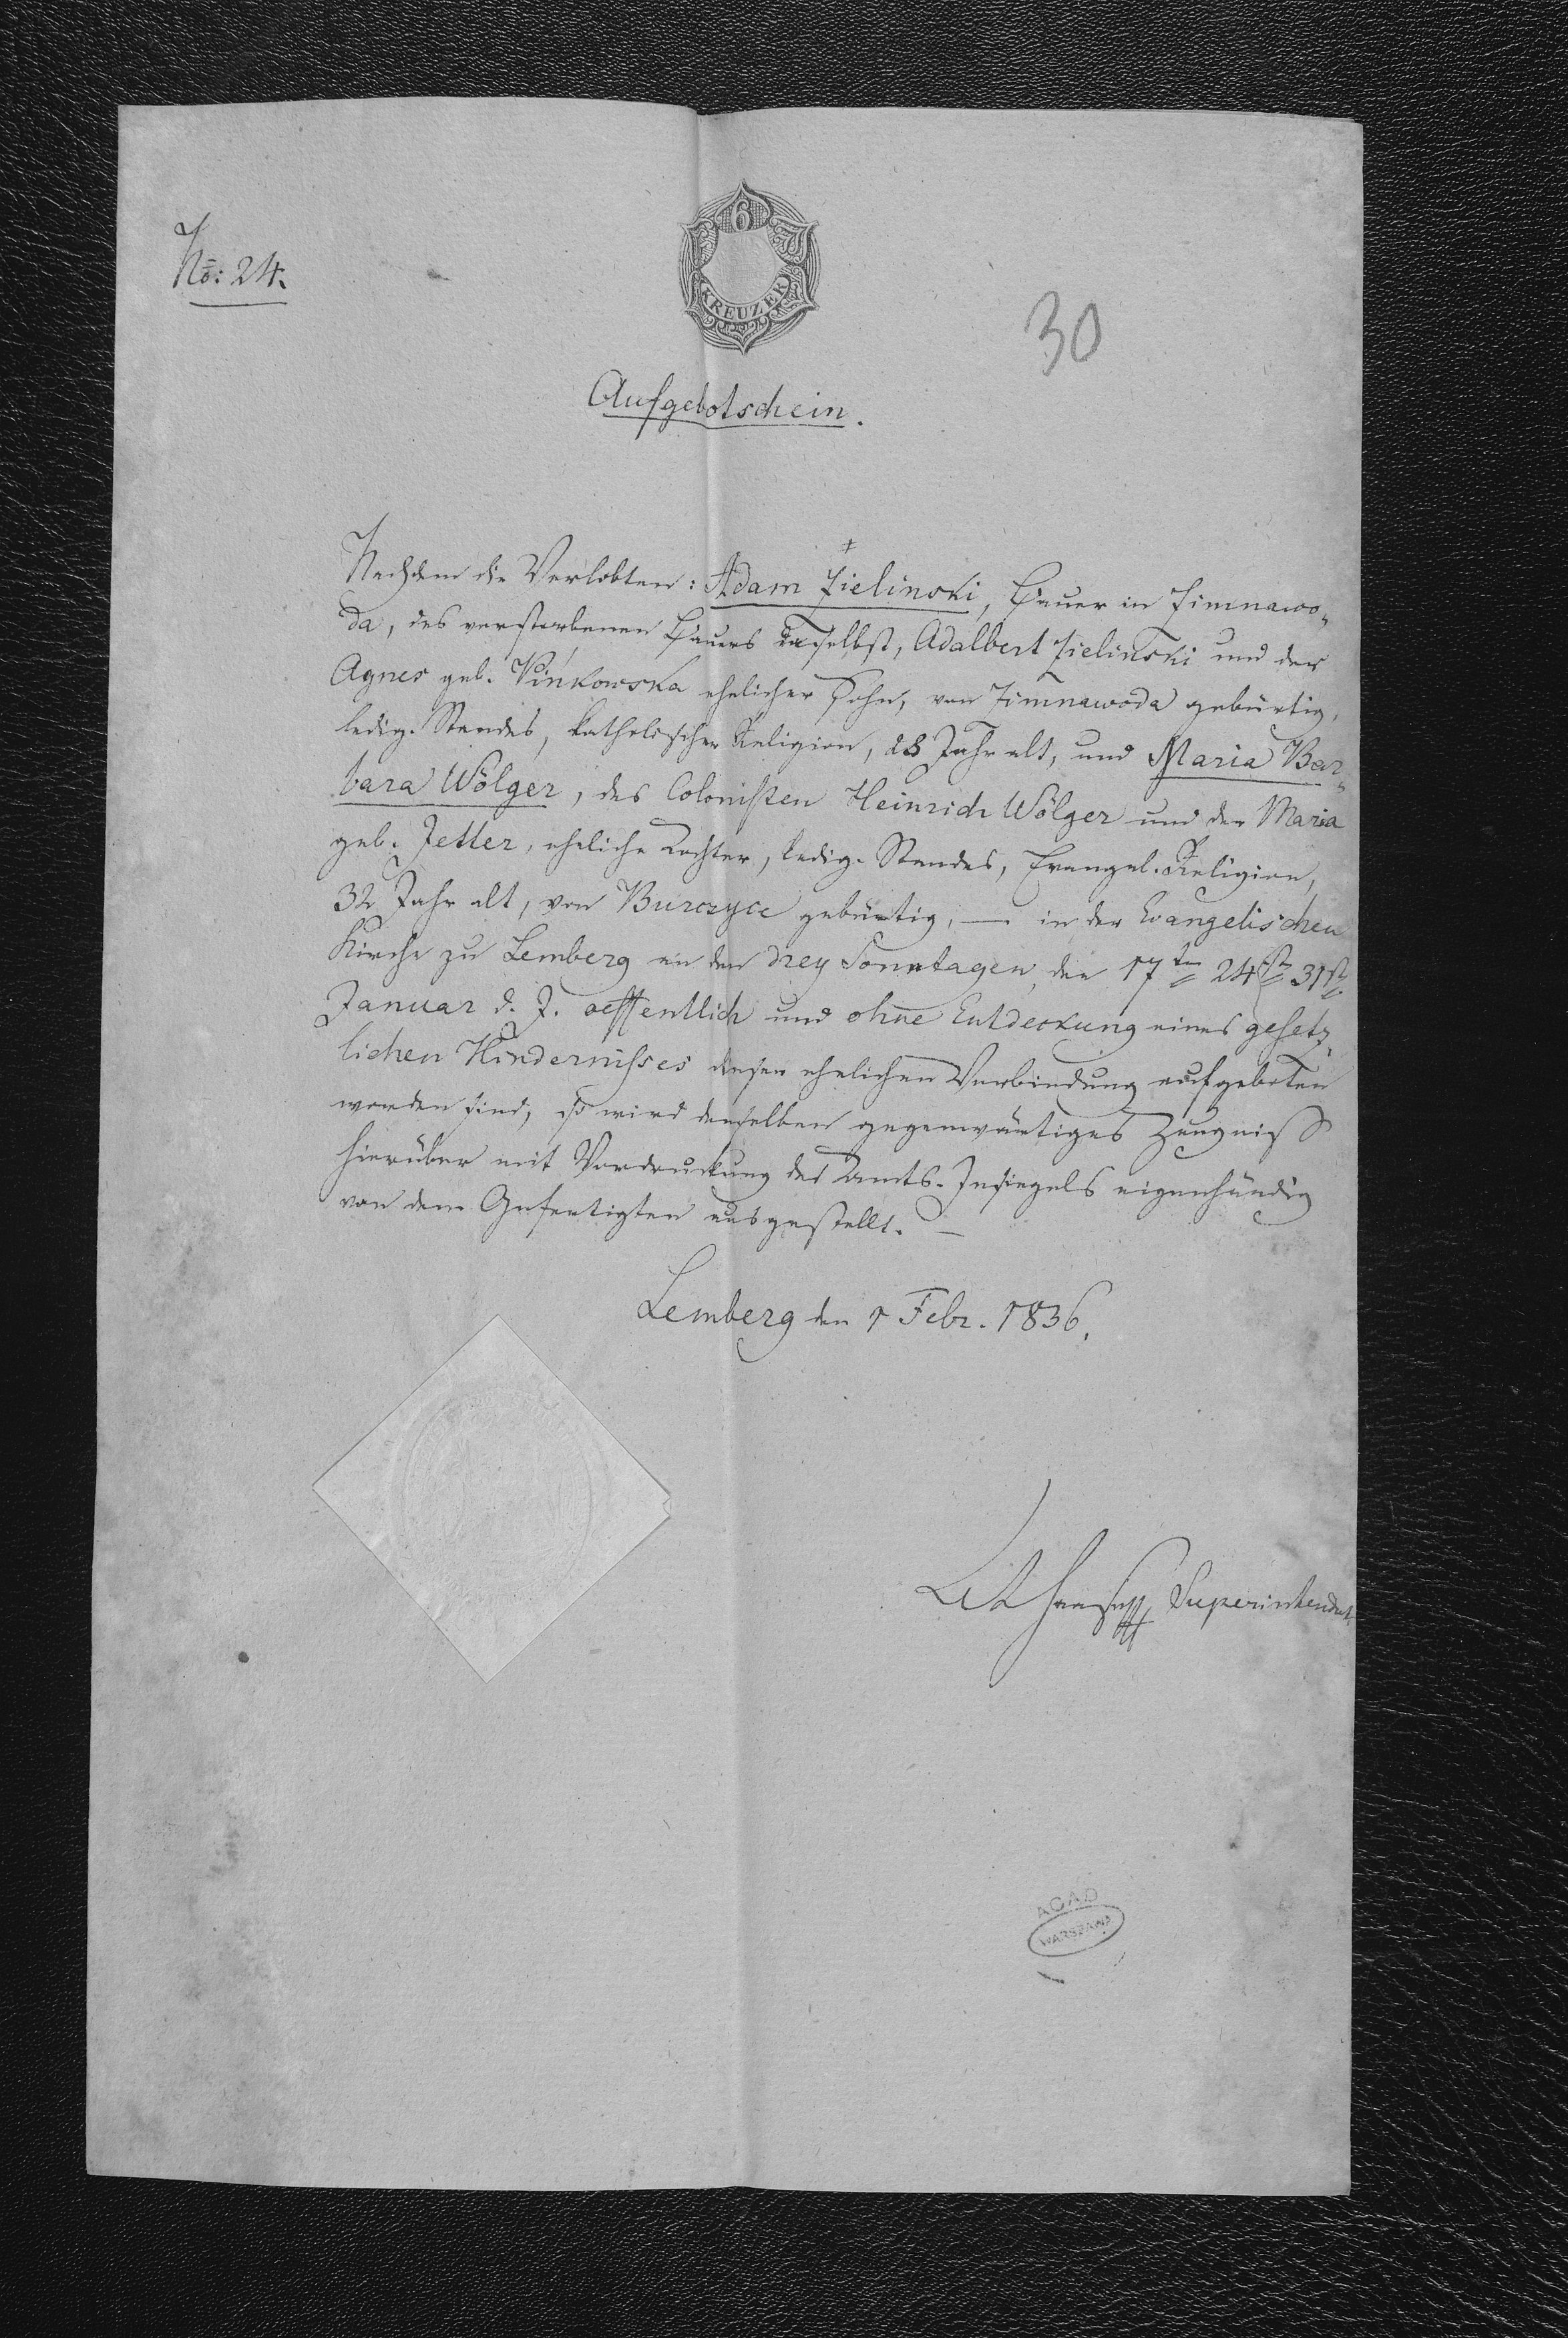 No: 24.
6
KREUZER
30
Aufgebotschein.
Nachdem die Verlobten: Adam Zielinski, Bauer in Zimnawo-
da, des verstorbenen Bauers daselbst, Adalbert Zielinski und der
Agnes geb. Vinkowska ehelicher Sohn, von Zimnawoda gebürtig,
ledig. Standes, katholischer Religion, 28 Jahr alt, und Maria Bar-
bara Wölger, des Colonisten Heinrich Wölger und der Maria
geb. Jetter, eheliche Tochter, ledig. Standes, Evangel. Religion,
32 Jahr alt, von Burczyce gebürtig, — in der Evangelischen
Kirche zu Lemberg an den drey Sonntagen, den 17ten 24st 31st
Januar d. J. oeffentlich und ohne Entdeckung eines gesetz-
lichen Hindernisses dieser ehelichen Verbindung aufgeboten
worden sind; so wird denselben gegenwärtiges Zeugniß
hierüber mit Vordruckung des Amts-Insiegels eigenhändig
von dem Gefertigten ausgestellt. —
Lemberg den 1 Febr. 1836.
Haase Superintendent.
AGAD
WARSZAWA